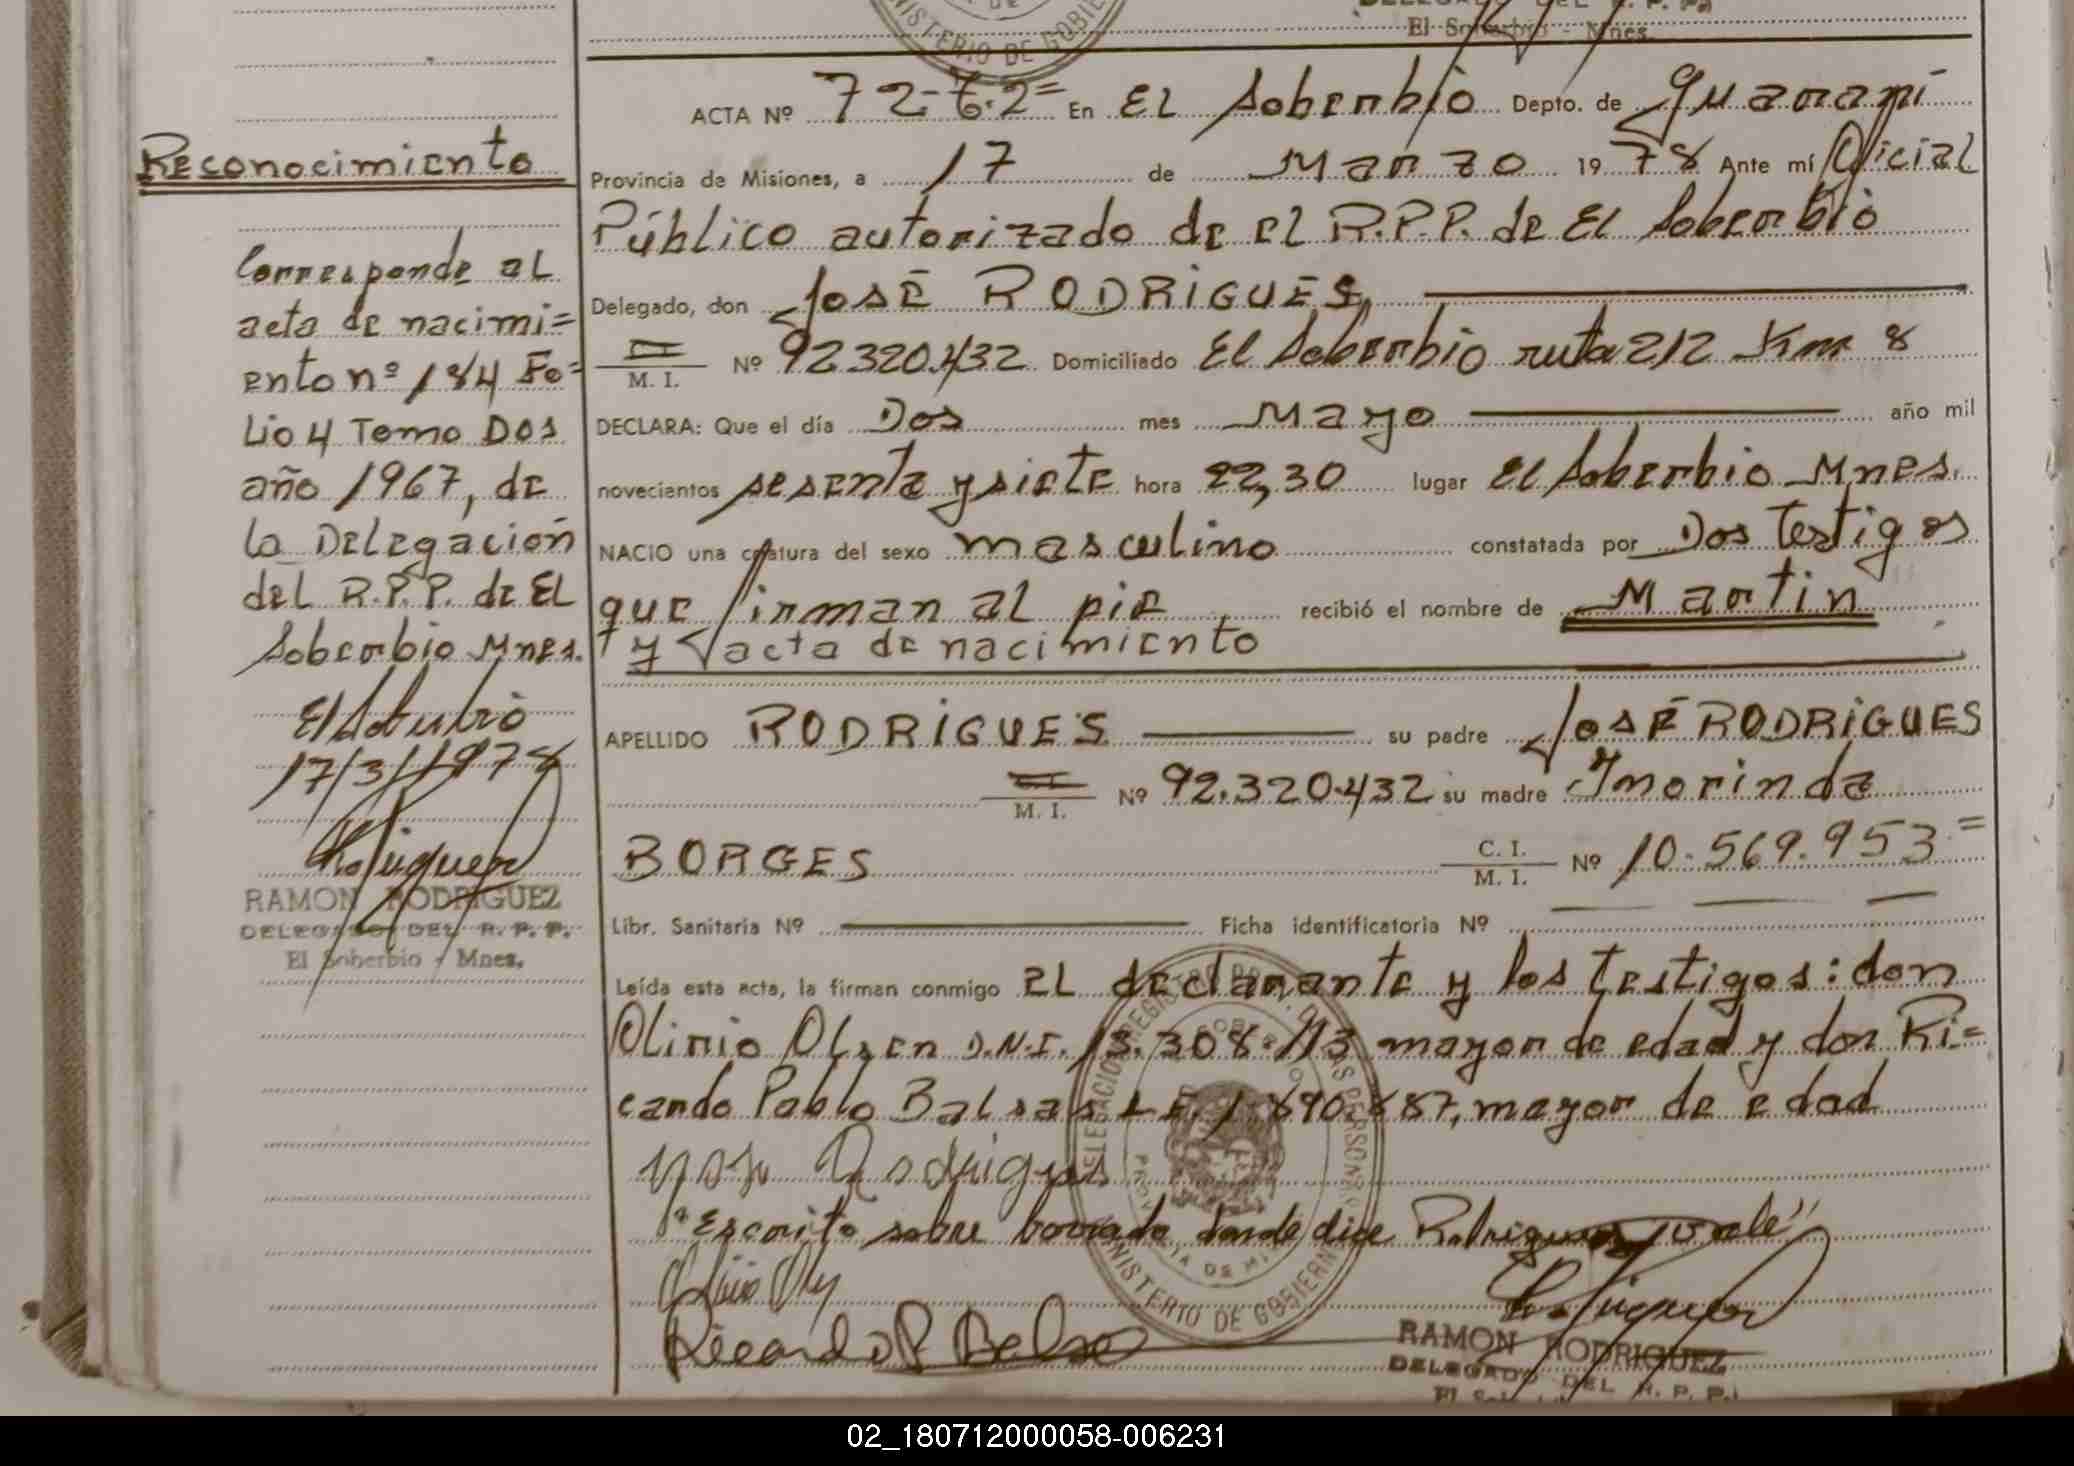 DELEGADO DEL R. P. P.
El Soberbio - Mnes.
MINISTERIO DE GOBIERNO
ACTA Nº 72-T.2= En El Soberbio Depto. de Guaraní
Provincia de Misiones, a 17 de Marzo 1978 Ante mí Oficial
Público autorizado de el R.P.P. de El Soberbio
Delegado, don José RODRIGUES,
M. I. Nº 92.320.432 Domiciliado El Soberbio ruta 212 Km 8
DECLARA: Que el día Dos mes Mayo año mil
novecientos sesenta y siete hora 22,30 lugar El Soberbio Mnes.
NACIO una criatura del sexo masculino constatada por Dos Testigos
que firman al pie recibió el nombre de Martin
y acta de nacimiento
APELLIDO RODRIGUES su padre José RODRIGUES
M. I. Nº 92.320.432 su madre Imorinda
BORGES C. I. M. I. Nº 10.569.953=
Libr. Sanitaria Nº Ficha identificatoria Nº
Leída esta acta, la firman conmigo El declarante y los testigos: don
Olirio Olsen D.N.I. 13.308.113 mayor de edad y don Ri=
cardo Pablo Balsas L.E. 1.890.887, mayor de edad
José Rodrigues
"Escrito sobre borrado donde dice Rodrigues, vale"
Ricardo P Balsas
RAMON RODRIGUEZ
DELEGADO DEL R. P. P.
MINISTERIO DE GOBIERNO
Reconocimiento
Corresponde al
acta de nacimi=
ento nº 184 Fo=
lio 4 Tomo Dos
año 1967, de
la Delegación
del R.P.P. de El
Soberbio Mnes.
El Soberbio
17/3/1978
RAMON RODRIGUEZ
DELEGADO DEL R. P. P.
El Soberbio - Mnes.
02_180712000058-006231